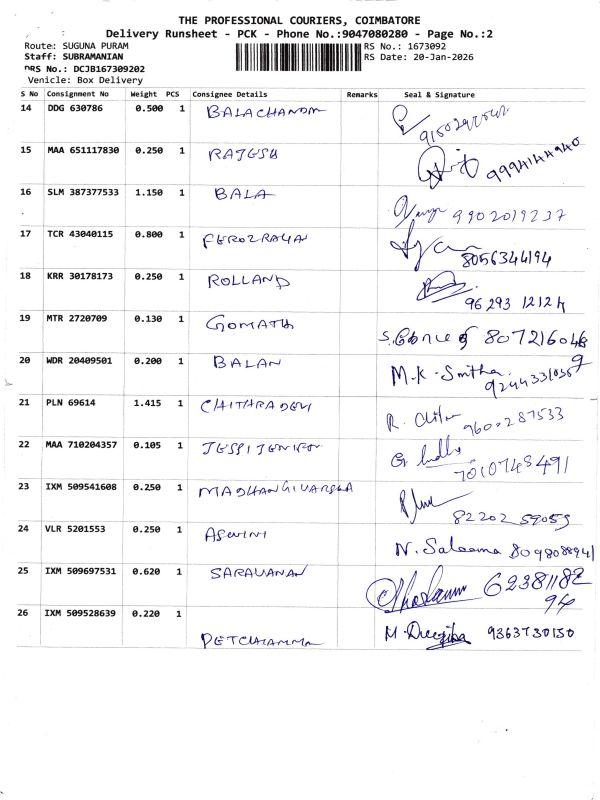 THE PROFESSIONAL COURIERS, COIMBATORE
Delivery Runsheet - PCK - Phone No.:9047080280 - Page No.:2
Route: SUGUNA PURAM RS No.: 1673092
Staff: SUBRAMANIAN RS Date: 20-Jan-2026
DRS No.: DCJB167309202
Vehicle: Box Delivery
S No Consignment No Weight PCS Consignee Details Remarks Seal & Signature
14 DDG 630786 0.500 1 BALACHANDR
15 MAA 651117830 0.250 1 RAJESH 9994144940
16 SLM 387377533 1.150 1 BALA 9902019237
17 TCR 43040115 0.800 1 FEROZKHAN 8056344194
18 KRR 30178173 0.250 1 ROLLAND 96293 12124
19 MTR 2720709 0.130 1 GOMATHI
20 WDR 20409501 0.200 1 BALAN M.K. Smitha
21 PLN 69614 1.415 1 CHITHRA DEVI R. Chitra 9600287533
22 MAA 710204357 0.105 1 JESSIJENIFER
23 IXM 509541608 0.250 1 MADHANGIVARSHA 82202 59059
24 VLR 5201553 0.250 1 ASWINI N. Saleema
25 IXM 509697531 0.620 1 SARAVANAN 62381182
94
26 IXM 509528639 0.220 1 PETCHIAMMA M. Deepika 9363730130